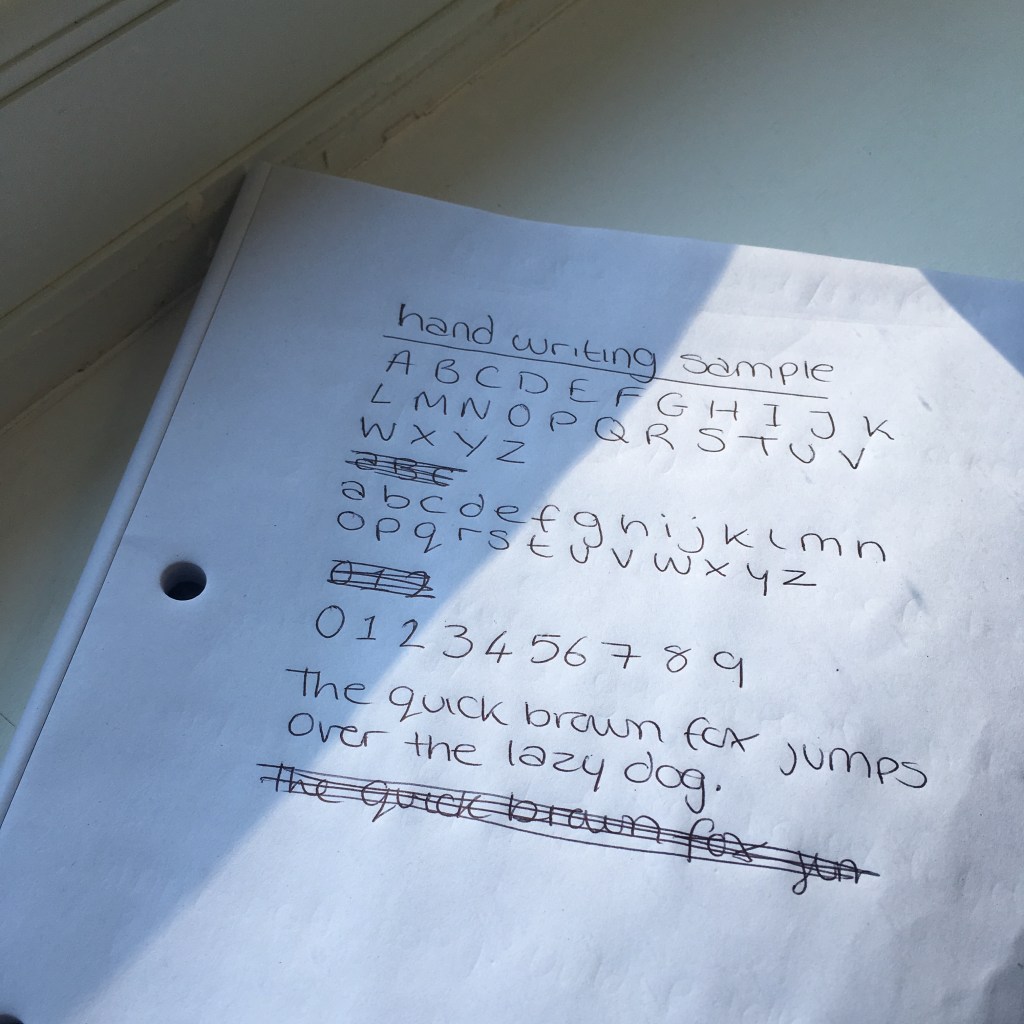 hand writing sample
A B C D E F G H I J K
L M N O P Q R S T U V
W X Y Z
a B C
a b c d e f g h i j k l m n
o p q r s t u v w x y z
0 1 2
0 1 2 3 4 5 6 7 8 9
The quick brown fox jumps
over the lazy dog.
The quick brown fox jum